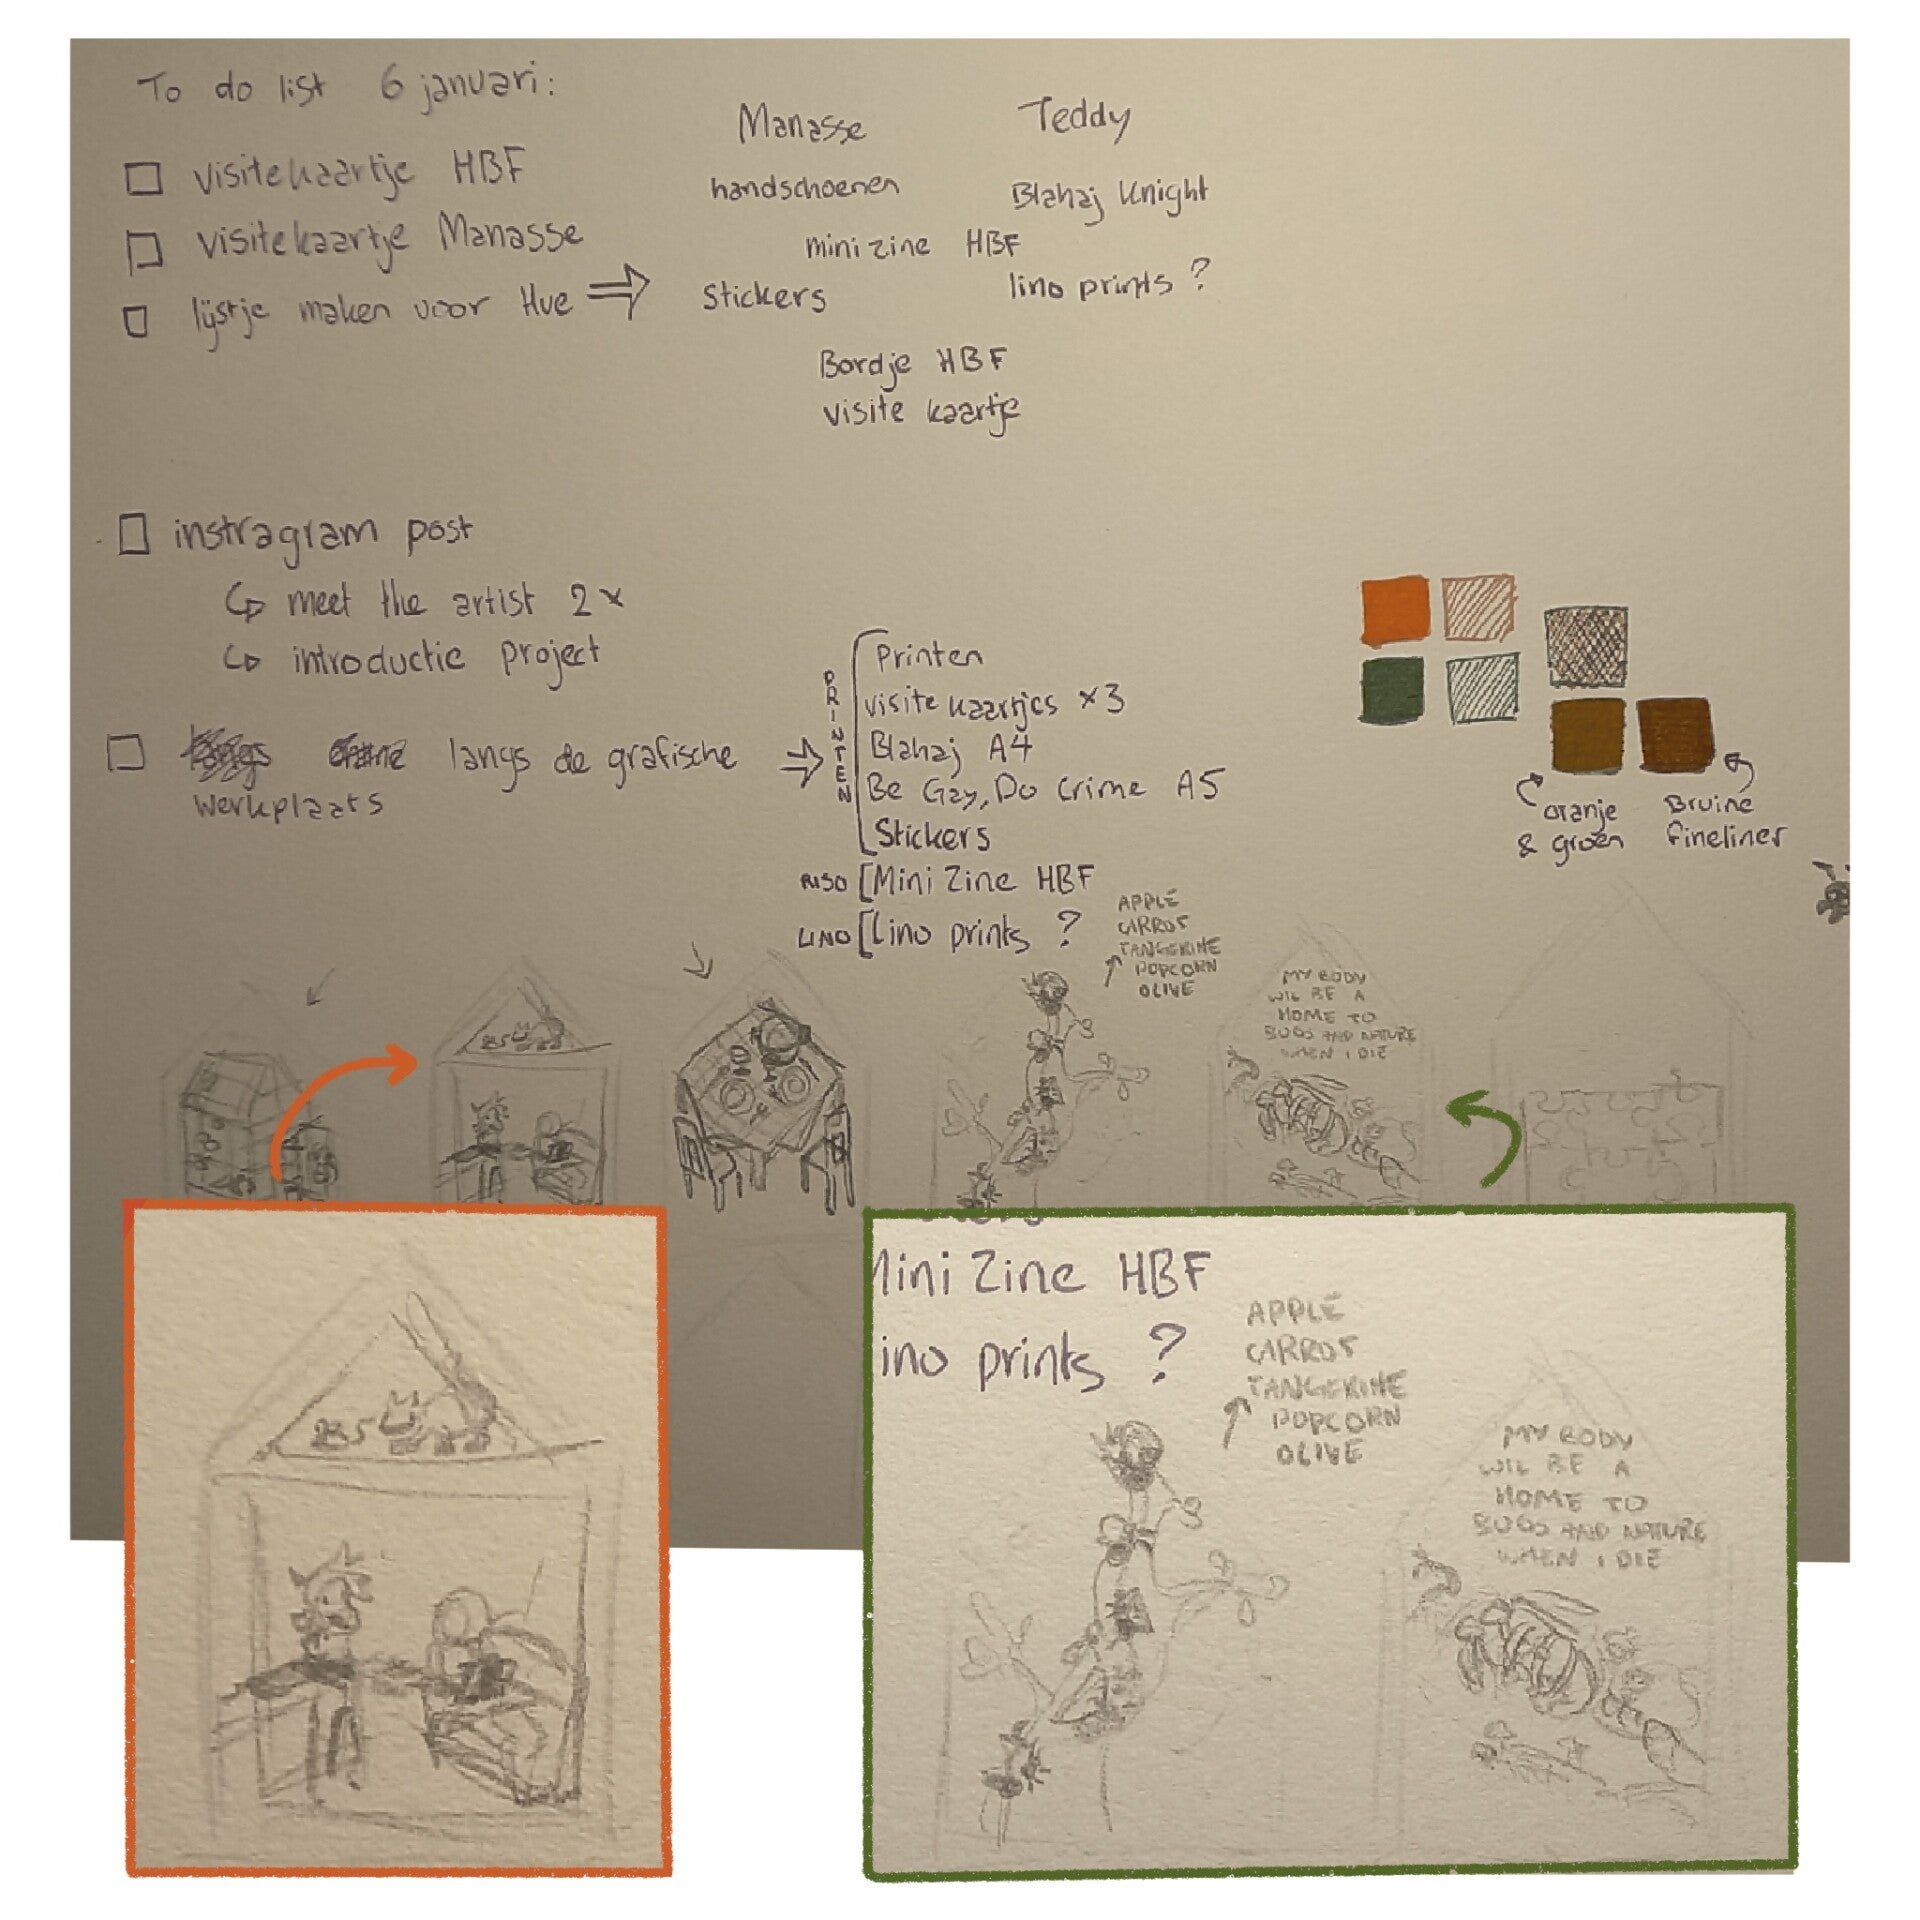 To do list 6 januari:
visitekaartje HBF
visitekaartje Manasse
lijstje maken voor Hue
Manasse
Teddy
handschoenen
Blahaj Knight
mini zine HBF
Stickers
lino prints ?
Bordje HBF
visite kaartje
instragram post
meet the artist 2x
introductie project
langs de grafische
werkplaats
PRINTEN
Printen
visite kaartjes x3
Blahaj A4
Be Gay, Do Crime A5
Stickers
RISO [Mini Zine HBF
LINO [Lino prints ?
oranje
& groen
Bruine
fineliner
APPLE
CARROT
TANGERINE
POPCORN
OLIVE
MY BODY
WIL BE A
HOME TO
BUGS AND NATURE
WHEN I DIE
235
235
Mini Zine HBF
ino prints ?
APPLE
CARROT
TANGERINE
POPCORN
OLIVE
MY BODY
WIL BE A
HOME TO
BUGS AND NATURE
WHEN I DIE